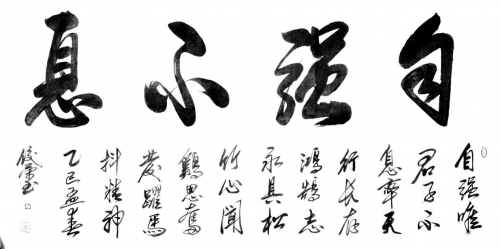 自强不息
自强唯
君子不
息率天
行长存
鸿鹄志
永具松
竹心闻
鷄思奮
發躍馬
抖精神
乙巳孟春